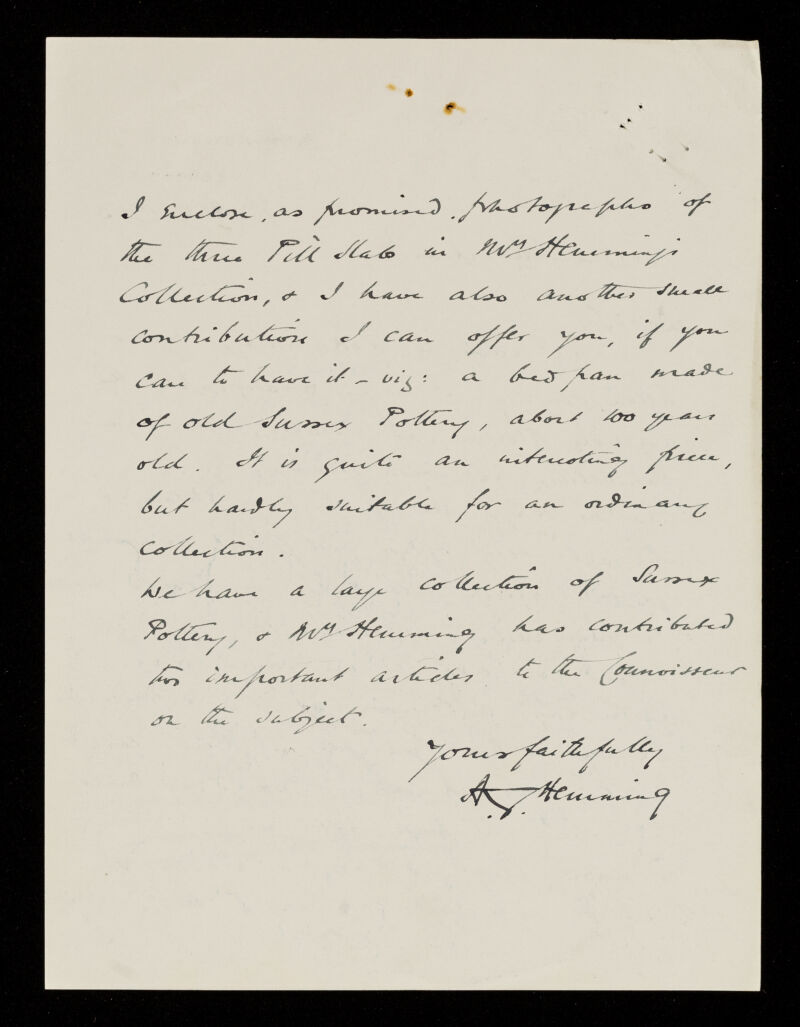 I enclose, as promised, photographs of
the three Pill Slabs in Mrs Hemming's
Collection, & I have also another small
contribution I can offer you, if you
care to have it – viz: a bed pan made
of old Sussex Pottery, about 100 years
old. It is quite an interesting piece,
but hardly suitable for an ordinary
collection.
We have a large collection of Sussex
Pottery, & Mrs Hemming has contributed
two important articles to the Connoisseur
on the subject.
Yours faithfully
A. J. Hemming